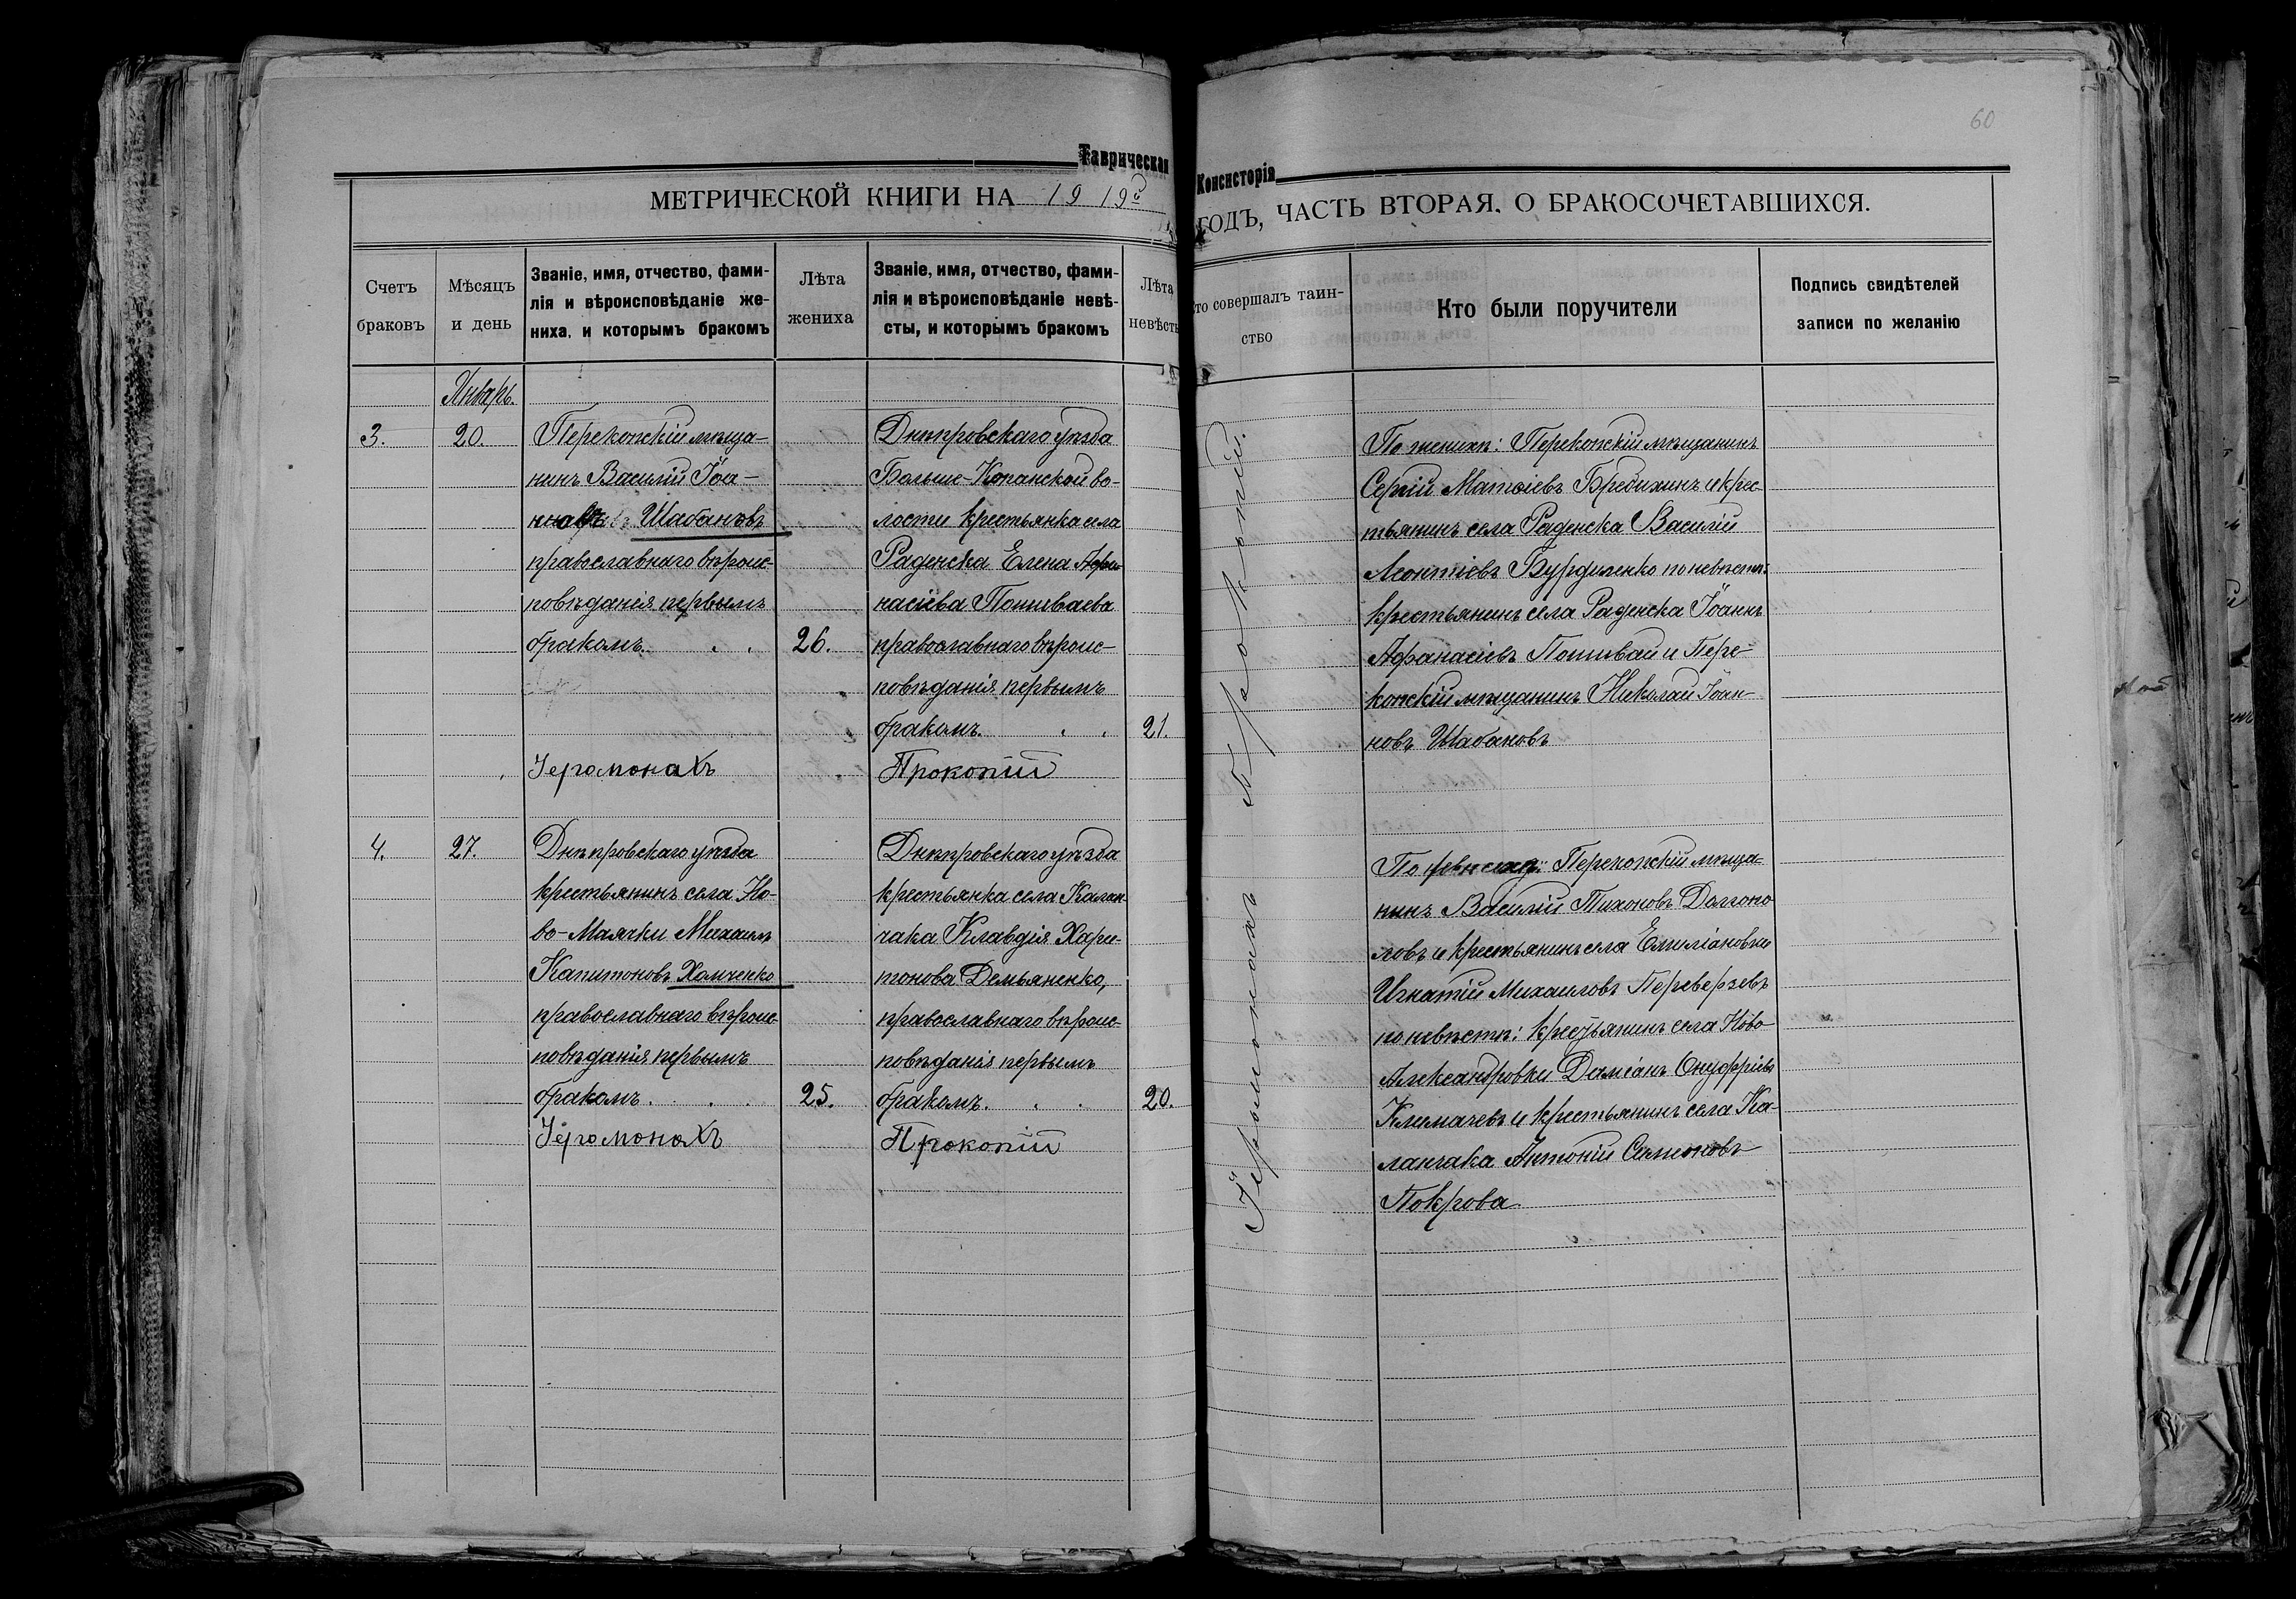 60
Таврическая Консисторія
МЕТРИЧЕСКОЙ КНИГИ НА 1919й ГОДЪ, ЧАСТЬ ВТОРАЯ, О БРАКОСОЧЕТАВШИХСЯ.
Счетъ браковъ
Мѣсяцъ и день
Званіе, имя, отчество, фами-
лія и вѣроисповѣданіе же-
ниха, и которымъ бракомъ
Лѣта
жениха
Званіе, имя, отчество, фами-
лія и вѣроисповѣданіе невѣ-
сты, и которымъ бракомъ
Лѣта
невѣсты
Кто совершалъ таин-
ство
Кто были поручители
Подпись свидѣтелей
записи по желанію
Январь.
3.
20.
Перекопскій мѣща-
нинъ Василій Іоа-
нновъ Шабановъ
православнаго вѣроис-
повѣданія первымъ
бракомъ. . .
26.
Іеромонахъ
Днѣпровскаго уѣзда
Больше-Копанской во-
лости крестьянка села
Раденска Елена Афа-
насіева Пошиваева
православнаго вѣроис-
повѣданія первымъ
бракомъ. . .
21.
Прокопій
Іеромонахъ Прокопій.
По женихѣ: Перекопскій мѣщанинъ
Сергій Матѳіевъ Бредихинъ и крес-
тьянинъ села Раденска Василій
Леонтіевъ Бурдиленко по невѣстѣ:
крестьянинъ села Раденска Іоаннъ
Афанасіевъ Пошивай и Пере-
копскій мѣщанинъ Николай Іоан-
новъ Шабановъ
4.
27.
Днѣпровскаго уѣзда
крестьянинъ села Но-
во-Маячки Михаилъ
Капитоновъ Хомченко
православнаго вѣроис-
повѣданія первымъ
бракомъ. . .
25.
Іеромонахъ
Днѣпровскаго уѣзда
крестьянка села Калан-
чака Клавдія Хари-
тонова Демьяненко,
православнаго вѣроис-
повѣданія первымъ
бракомъ. . .
20.
Прокопій
По Перекопскій мѣща-
нинъ Василій Тихоновъ Долгопо-
ловъ и крестьянинъ села Емиліановки
Игнатій Михаиловъ Переверзевъ
по невѣстѣ: крестьянинъ села Ново-
Александровки Даміанъ Онуфріевъ
Климачевъ и крестьянинъ села Ка-
ланчака Антоній Симеоновъ
Покрова